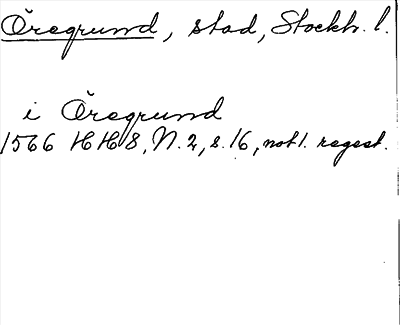 Öregrund, stad, Stockh. l.
i Öregrund
1566 HH 8, N. 2, s. 16, not 1. regest.